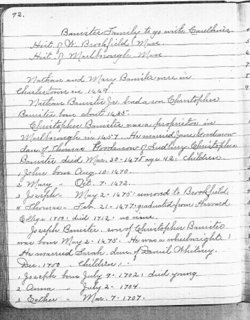 72.
Banister Family to go with Cauthier
Hist. of N. Brookfield, Mass
Hist. of Marlborough, Mass
Nathan and Mary Banister were in
Charlestown in 1664
Nathan Banister Jr. had a son Christopher
Banister born about
Christopher Banister was a proprietor in
Marlborough in 1657. He married Jane Goodenow
dau. of Thomas Goodenow of Sudbury. Christopher
Banister died Mar. 30-1678 age 42. Children
1 John born Aug. 10-1670.
2 Mary " Oct. 9-1672.
3 Joseph " May 2-1675. removed to Brookfield.
4 Thomas " Feb. 21-1677. graduated from Harvard
College 1700. died 1712. no issue.
Joseph Banister, son of Christopher Banister
was born May 2-1675. He was a wheelwright.
He married Sarah, dau. of Daniel Whitney.
Dec. Children:-
1 Joseph born July 9-1702. died young
2 Anna " July 2-1704
3 Esther " Mar. 9-1707.